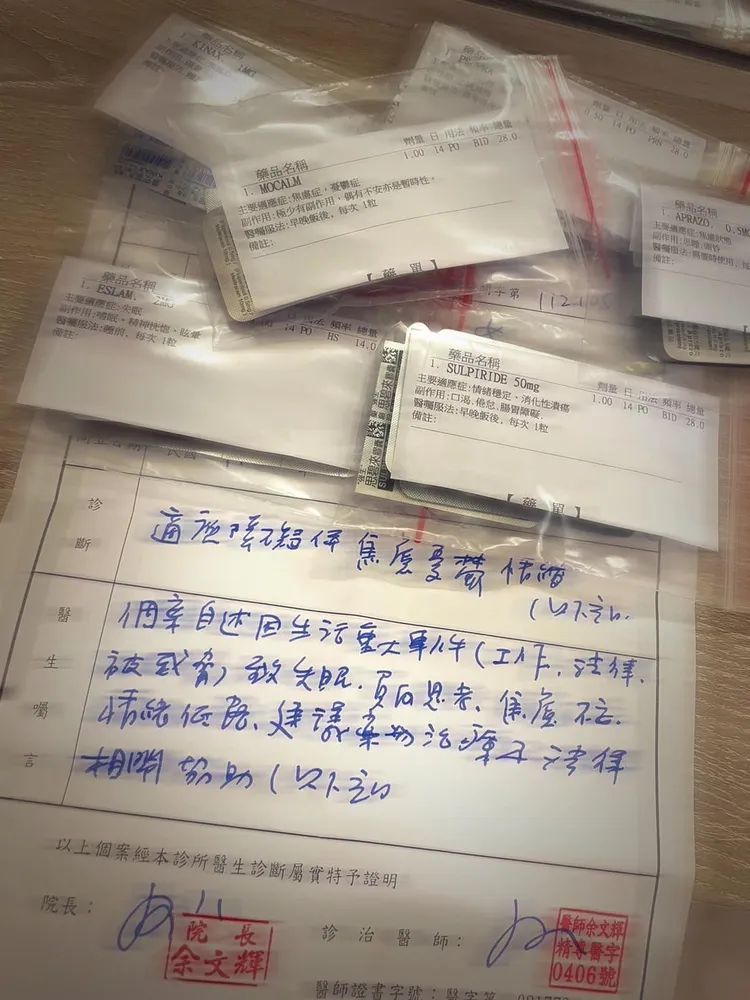 藥品名稱
1. KINAX
藥品名稱
1.
劑量 日 用法 頻率 總量
0.50 14 PO PRN 28.0
藥品名稱
1. MOCALM
劑量 日 用法 頻率 總量
1.00 14 PO BID 28.0
主要適應症:焦慮症，憂鬱症
副作用:極少有副作用、偶有不安亦是暫時性。
醫囑服法:早晚飯後，每次 1粒
備註:
【 藥 單 】
藥品名稱
1. APRAZO, 0.5M
主要適應症:焦慮狀態
副作用:思睡,頭昏
醫囑服法:需要時使用，每
備註:
字第 112
藥品名稱
1. ESLAM, 2MG
主要適應症:失眠
副作用:嗜眠、精神恍惚、眩暈
醫囑服法:睡前，每次 1粒
備註:
用法 頻率 總量
14 PO HS 14.0
藥品名稱
1. SULPIRIDE 50mg
劑量 日 用法 頻率 總量
1.00 14 PO BID 28.0
主要適應症:情緒穩定、消化性潰瘍
副作用:口渴、倦怠、腸胃障礙.
醫囑服法:早晚飯後，每次 1粒
備註:
【 藥 單 】
民國
診斷
適應障礙伴焦慮憂鬱情緒
(以下空白
醫生囑言
個案自述因生活重大事件(工作、法律、
被威脅)致失眠、負向思考、焦慮不安、
情緒低落、建議藥物治療及法律
相關協助(以下空白
以上個案經本診所醫生診斷屬實特予證明
院長:
院長
余文輝
診治醫師:
醫師余文輝
精專醫字
0406號
醫師證書字號:醫字第